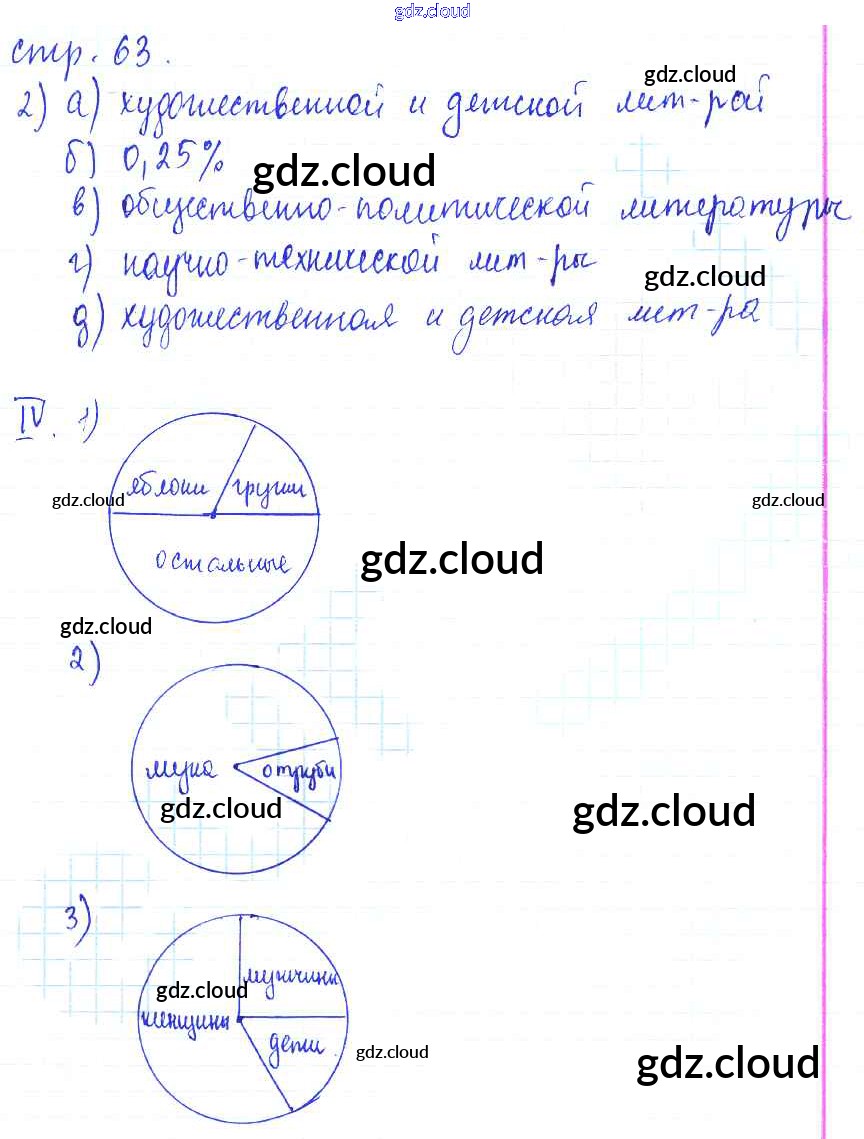 gdz.cloud
стр. 63.
gdz.cloud
2) а) художественной и детской лит-рой
б) 0,25%
gdz.cloud
в) общественно-политической литературы
г) научно-технической лит-ры
gdz.cloud
д) художественная и детская лит-ра
IV. 1)
яблоки груши
gdz.cloud
gdz.cloud
остальные
gdz.cloud
gdz.cloud
2)
мука отруби
gdz.cloud
gdz.cloud
3)
мужчины
gdz.cloud
женщины
дети
gdz.cloud
gdz.cloud